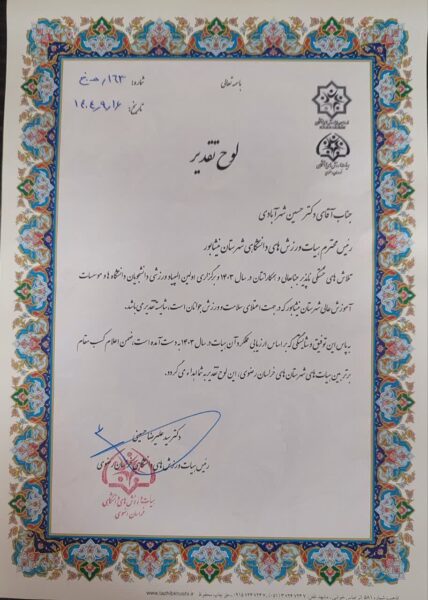 باسمه تعالی
شماره: ۱۶۳/ص خ
تاریخ: ۱۴۰۴/۹/۱۶
لوح تقدیر
جناب آقای دکتر حسین شهرآبادی
رئیس محترم هیات ورزش های دانشگاهی شهرستان نیشابور
تلاش های خستگی ناپذیر جنابعالی و همکارانتان در سال ۱۴۰۳ و برگزاری اولین المپیاد ورزشی دانشجویان دانشگاه ها و موسسات
آموزش عالی شهرستان نیشابور که در جهت اعتلای سلامت و ورزش جوانان است، شایسته تقدیر می باشد.
به پاس این توفیق و شایستگی که بر اساس ارزیابی عملکرد آن هیات در سال ۱۴۰۳ به دست آمده است، ضمن اعلام کسب مقام
برتر بین هیات های شهرستان های خراسان رضوی، این لوح تقدیر به شما اهداء می گردد.
دکتر سید علیرضا حسینی
رئیس هیات ورزش های دانشگاهی خراسان رضوی
هیات ورزش های دانشگاهی
خراسان رضوی
www.tazhibkhashi.ir